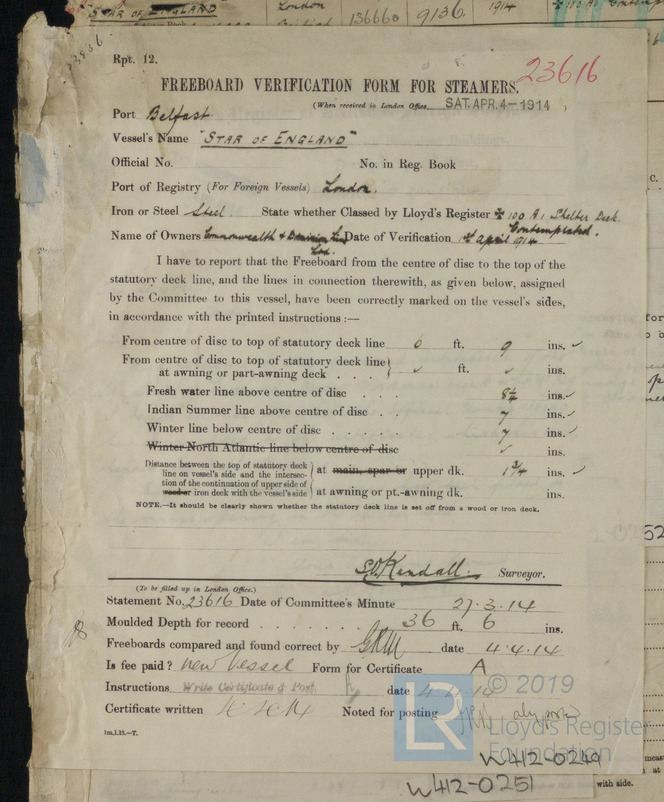 STAR OF ENGLAND London 136660 9136 1914
Rpt. 12.
23616
FREEBOARD VERIFICATION FORM FOR STEAMERS.
(When received in London Office, SAT. APR. 4-1914)
Port Belfast.
Vessel's Name "STAR OF ENGLAND"
Official No. No. in Reg. Book
Port of Registry (For Foreign Vessels) London.
Iron or Steel Steel State whether Classed by Lloyd's Register ✠ 100 A1 Shelter Deck
Contemplated.
Name of Owners Commonwealth & Dominion Line Ltd. Date of Verification 1st April 1914
I have to report that the Freeboard from the centre of disc to the top of the
statutory deck line, and the lines in connection therewith, as given below, assigned
by the Committee to this vessel, have been correctly marked on the vessel's sides,
in accordance with the printed instructions :—
From centre of disc to top of statutory deck line 6 ft. 9 ins. ✓
From centre of disc to top of statutory deck line
at awning or part-awning deck . . . ✓ ft. ✓ ins.
Fresh water line above centre of disc . . . 8¼ ins. ✓
Indian Summer line above centre of disc . . . 7 ins. ✓
Winter line below centre of disc . . . . . 7 ins. ✓
Winter North Atlantic line below centre of disc ✓ ins.
Distance between the top of statutory deck
line on vessel's side and the intersec-
tion of the continuation of upper side of
wood or iron deck with the vessel's side
at main, spar or upper dk. 1¾ ins. ✓
at awning or pt.-awning dk. ins.
NOTE.—It should be clearly shown whether the statutory deck line is set off from a wood or iron deck.
S.O. Kendall. Surveyor.
(To be filled up in London Office.)
Statement No. 23616 Date of Committee's Minute 27.3.14
Moulded Depth for record . . . . . . . 36 ft. 6 ins.
Freeboards compared and found correct by date 4.4.14
Is fee paid? New Vessel Form for Certificate A
Instructions Write Certificate & Post date
Certificate written Noted for posting
1m,1.13.—T.
© 2019
LR
Lloyd's Register
Foundation
W412-0249
W412-0251
with side.